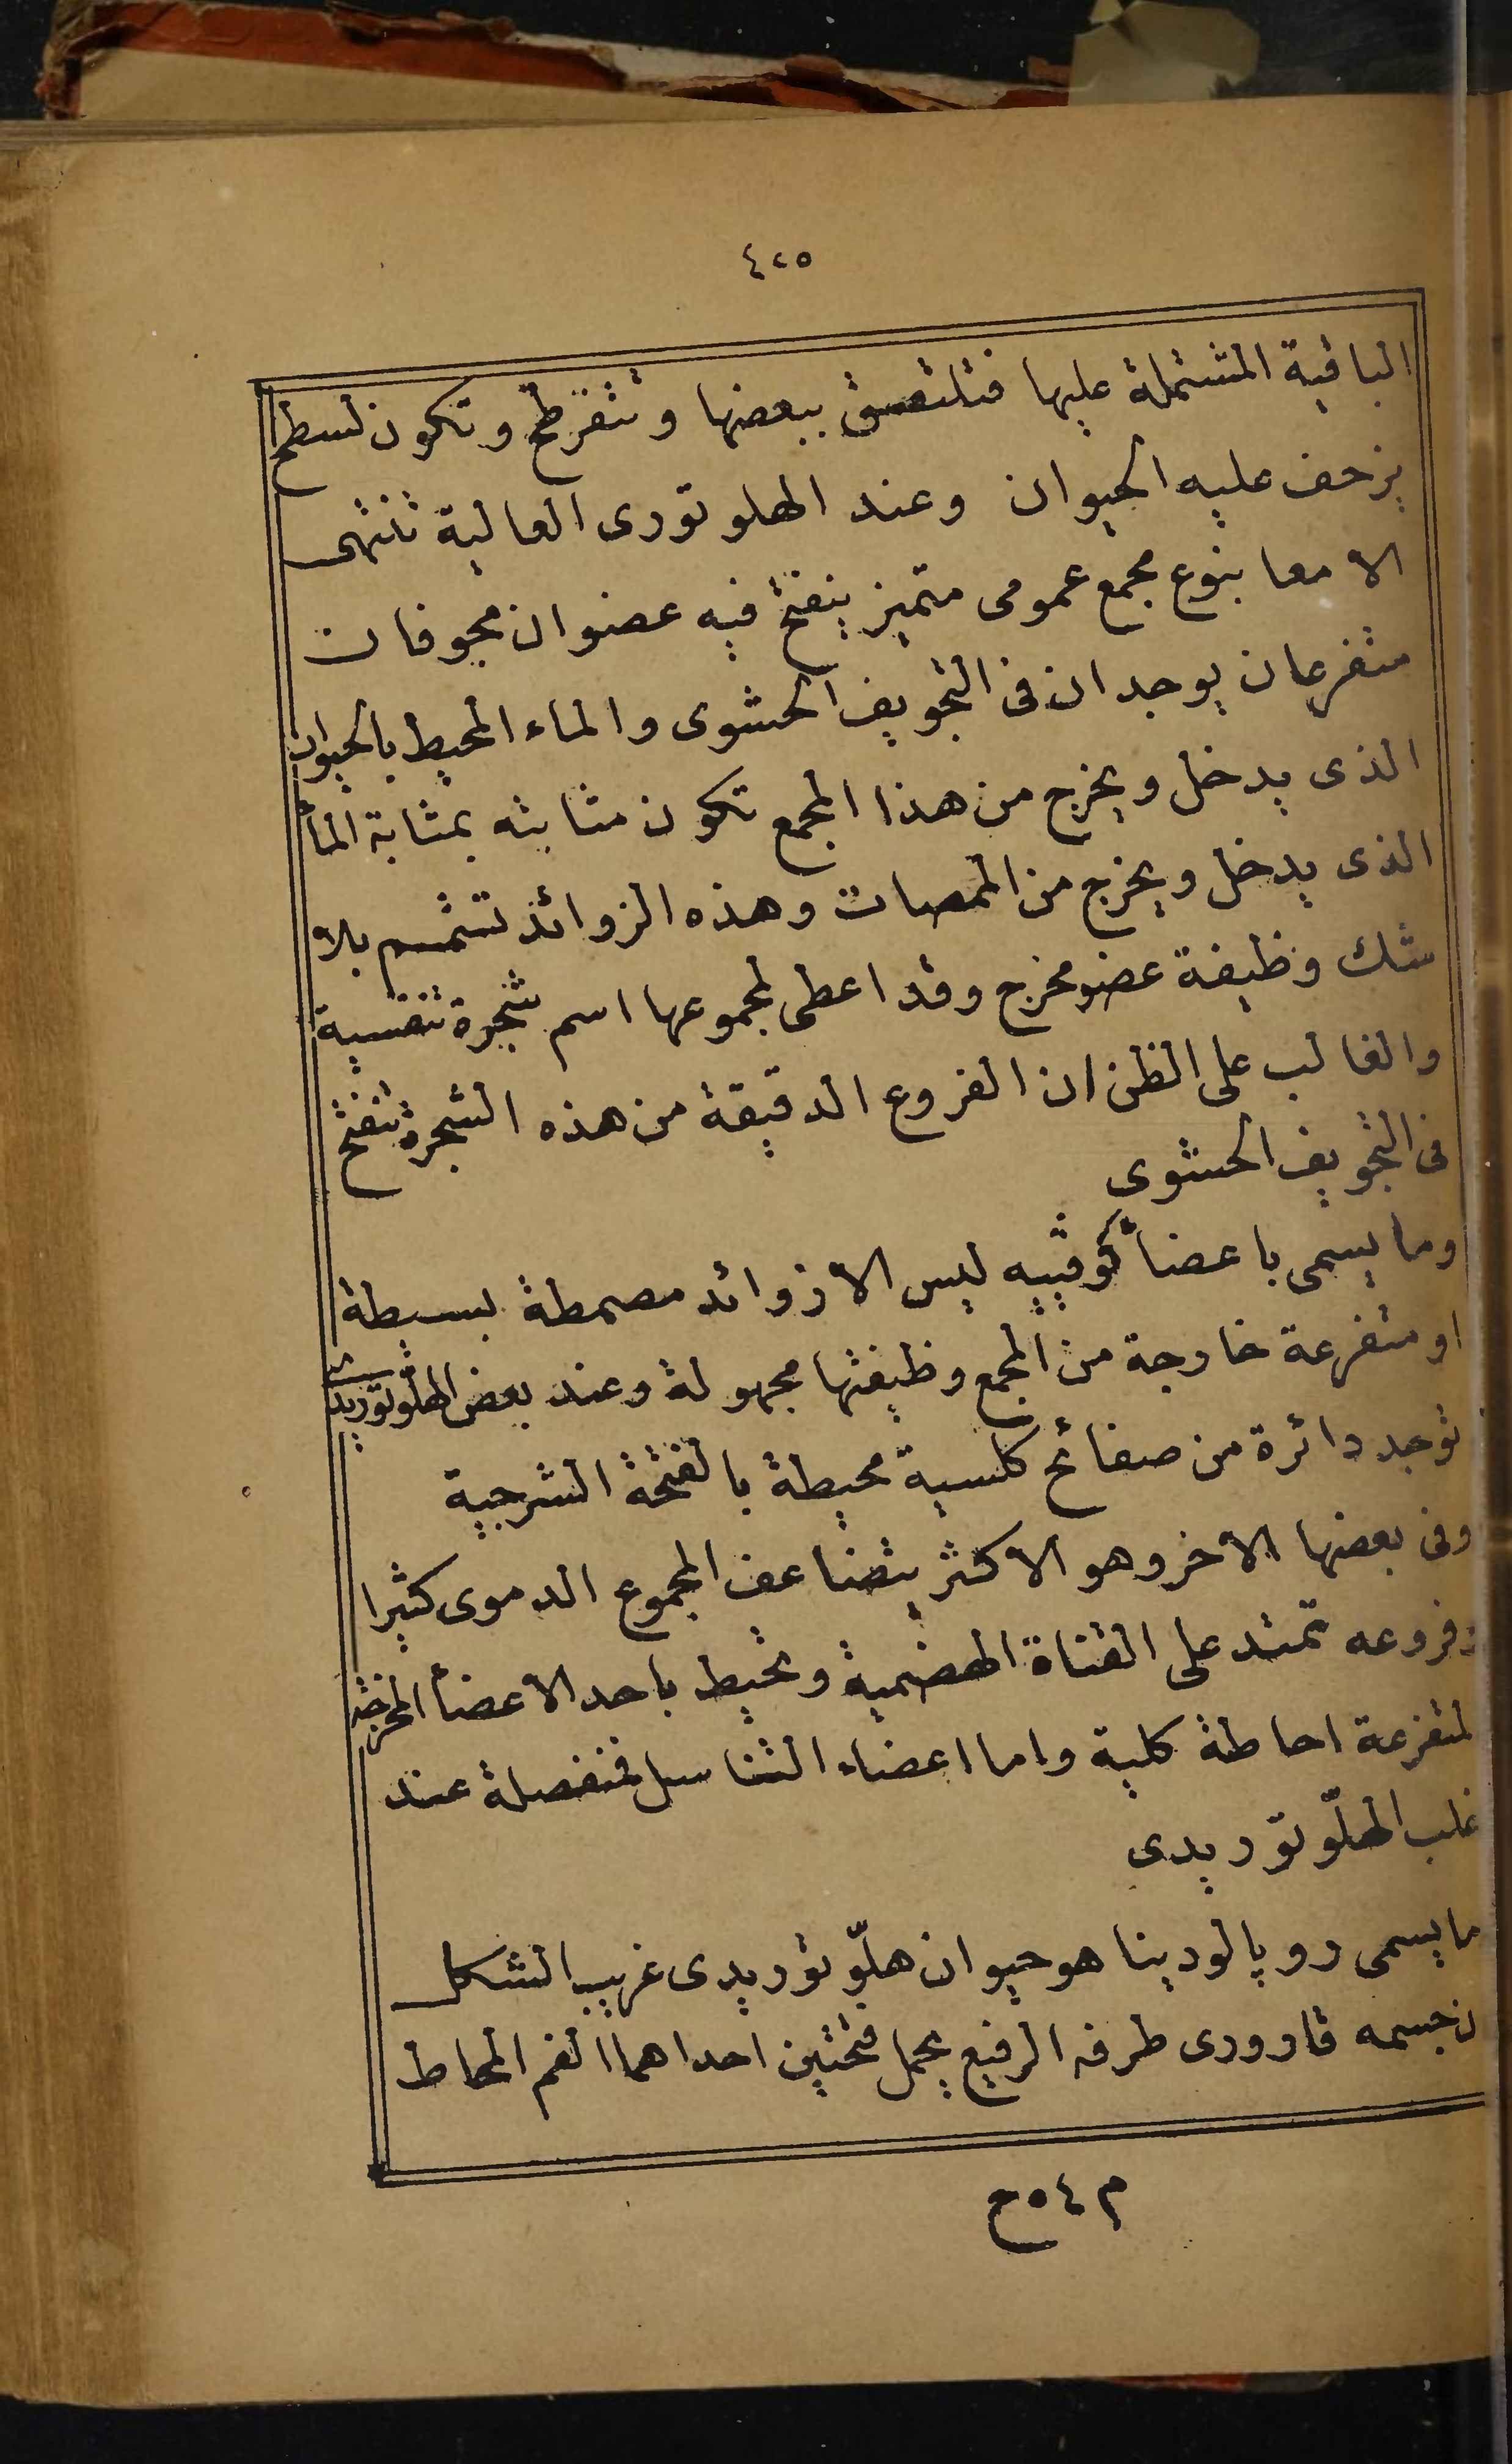 ٤٢٥
الباقية المشتملة عليها فتلتصق ببعضها وتتفرطح وتكون لسطح
يزحف عليه الحيوان وعند الهلوتورى العالية تنتهى
الامعا بنوع مجمع عمومى متميز ينفتح فيه عضوان مجوفان
متفرعان يوجدان فى التجويف الحشوى والماء المحيط بالحيوان
الذى يدخل ويخرج من هذا المجمع تكون مثابته بمثابة الماء
الذى يدخل ويخرج من الممصات وهذه الزوائد تتمم بلا
شك وظيفة عضو مخرج وقد اعطى لمجموعها اسم شجرة تنفسية
والغالب على الظن ان الفروع الدقيقة من هذه الشجرة تنفتح
فى التجويف الحشوى
وما يسمى باعضأ كوفييه ليس الا زوائد مصمطة بسيطة
او متفرعة خارجة من المجمع وظيفتها مجهولة وعند بعض الهلوتوريد
توجد دائرة من صفائح كلسية محيطة بالفتحة الشرجية
وفى بعضها الاخر وهو الاكثر يتضاعف المجموع الدموى كثيرا
وفروعه تمتد على القناة الهضمية وتحيط باحد الاعضأ المخرجة
لمتفرعة احاطة كلية واما اعضاء التناسل فمنفصلة عند
غلب الهلّوتوريدى
ما يسمى روپالودينا هو حيوان هلّوتوريدى غريب الشكل
ن جسمه قارورى طرفه الرفيع يحمل فتحتين احداهما الفم المحاط
م ٥٤ ح